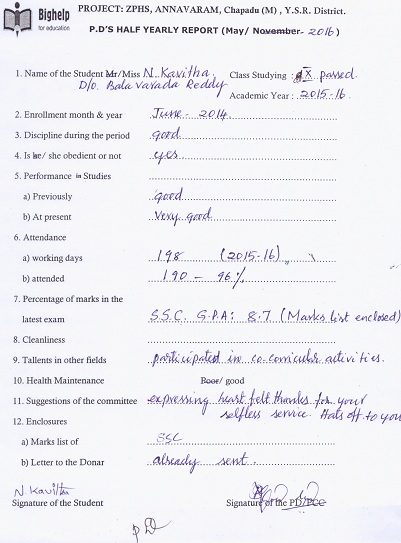 Bighelp
for education
PROJECT: ZPHS, ANNAVARAM, Chapadu (M) , Y.S.R. District.
P.D'S HALF YEARLY REPORT (May/ November- 2016)
1. Name of the Student Mr/Miss N. Kavitha. Class Studying : X passed.
D/o. Bala Varada Reddy Academic Year : 2015-16.
2. Enrollment month & year June - 2014
3. Discipline during the period good
4. Is he/ she obedient or not yes
5. Performance in Studies
a) Previously good
b) At present very good
6. Attendance
a) working days 198 (2015-16)
b) attended 190 - 96%
7. Percentage of marks in the
latest exam S.S.C. G.P.A: 8.7 (Marks list enclosed)
8. Cleanliness
9. Tallents in other fields participated in co-curricular activities.
10. Health Maintenance Poor/ good
11. Suggestions of the committee expressing heart felt thanks for your
selfless service. Hats off to you
12. Enclosures
a) Marks list of SSC
b) Letter to the Donar already sent.
N. Kavitha
Signature of the Student Signature of the PD/PCC
PD